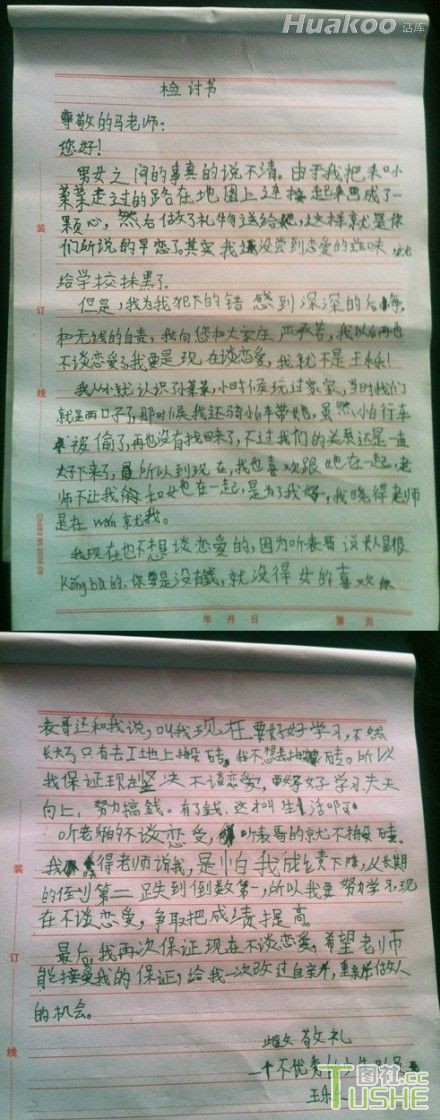 Huakoo 话库
检讨书
尊敬的马老师:
您好!
男女之间的事真的说不清。由于我把和小
菜菜走过的路在地图上连接起来画成了一
颗心,然后做了礼物送给她,这样就是你
们所说的早恋了。其实我还没尝到恋爱的滋味
给学校抹黑了。
但是,我为我犯下的错感到深深的后悔
和无线的自责,我向您和大家庄严承若,我以后再也
不谈恋爱了,我要是现在谈恋爱,我就不是王乐!
我从小就认识孙菜菜,小时候玩过家家,当时我们
就是两口子了,那时候我还骑怕车带她,虽然小怕行车
被偷了,再也没有找回来了,不过我们的关系还是一直
好下来了,所以到现在,我也喜欢跟她在一起,老
师不让我们和她在一起,是为了我好,我晓得老师
是在wan就我。
我现在也不想谈恋爱的,因为听表哥说大人是很
kong bu的,你要是没有钱,就没得女的喜欢你
年 月 日 第 页
装
订
线
表哥还和我说,叫我现在要好好学习,不然
长大了只有去工地上搬砖,我不想去搬砖。所以
我保证现在坚决不谈恋爱,要好好学习天天
向上,努力搞钱。有了钱,这才叫生活呀
听老师的不谈恋爱,听表哥的就不搬砖。
我晓得老师说我,是怕我成绩下降,从长期
的倒数第二跌到倒数第一,所以我要努力学习,现
在不谈恋爱,争取把成绩提高。
最后我再次保证现在不谈恋爱,希望老师
能接受我的保证,给我一次改过自亲,重亲做人
的机会。
敬礼
一个不优秀
王乐
装
订
线
图社.cc
TUSHE